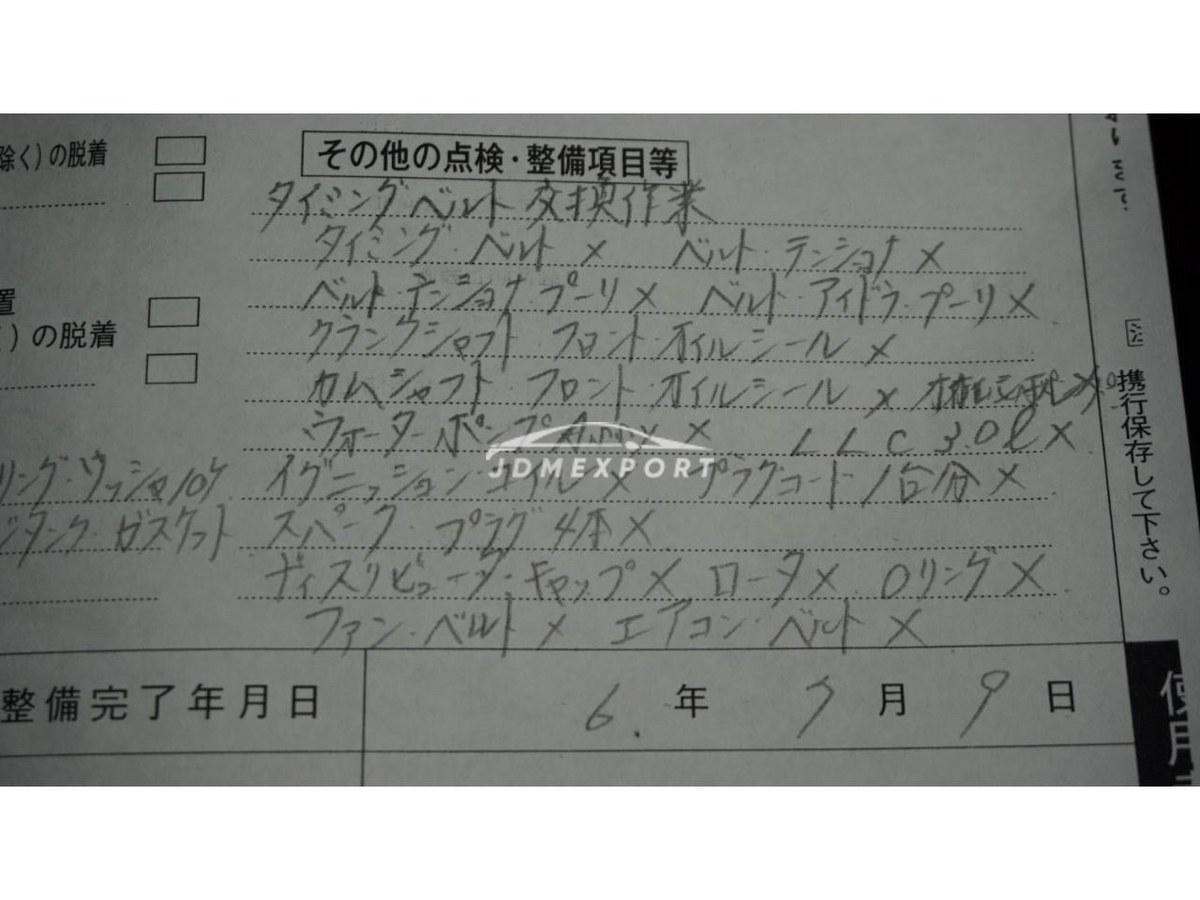 除く)の脱着
その他の点検・整備項目等
タイミングベルト交換作業
タイミング・ベルト × ベルト・テンショナ ×
置
)の脱着
ベルト・テンショナ プーリ × ベルト・アイドラ・プーリ ×
クランクシャフト フロント・オイルシール ×
カムシャフト フロント・オイルシール ×
ウォーターポンプ × LLC 3.0ℓ ×
リング・ワッシャ10ケ イグニッション・コイル × プラグコード 1台分 ×
タンク ガスケット スパーク・プラグ 4本 ×
ディストリビュータ・キャップ × ロータ × Oリング ×
ファン・ベルト × エアコン・ベルト ×
整備完了年月日 6. 年 7 月 9 日
携行保存して下さい。
使用
JDMEXPORT